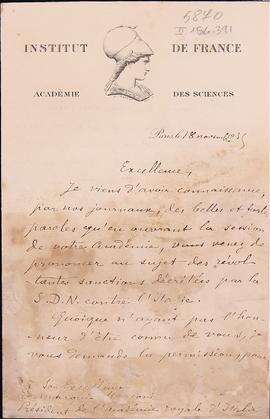 5870
II 156-391
INSTITUT DE FRANCE
ACADÉMIE DES SCIENCES
Paris le 18 novembre 35
Excellence,
Je viens d'avoir connaissance,
par nos journaux, des belles et
paroles qu'en ouvrant la session
de votre Académie, vous venez de
prononcer au sujet des révol-
tantes sanctions décrétées par la
S.D.N. contre l'Italie.
Quoique n'ayant pas l'hon-
neur d'être connu de vous, je
vous demande la permission, pour
Son Excellence
Marconi
Président de l'Académie royale d'Italie